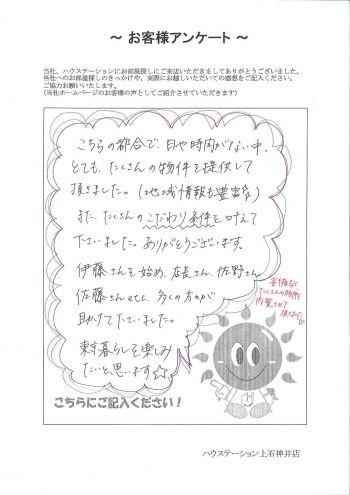 ～ お客様アンケート ～
当社、ハウステーションにお部屋探しにご来店いただきましてありがとうございました。
当社へのお部屋探しのきっかけや、実際にお越しいただいての感想をご記入ください。
ご協力お願いいたします。
(当社ホームページのお客様の声としてご紹介させていただきます)
こちらの都合で日や時間がない中、
とても、たくさんの物件を提供して
頂きました。(地域情報も豊富)
また、たくさんのこだわり条件を叶えて
下さいました。ありがとうございます。
伊藤さんを始め、店長さん、佐野さん
佐藤さんetc、多くの方々が
助けて下さいました。
東京暮らしを楽しみ
たいと思います☆
たくさんの物件
内覧させて
頂きました
こちらにご記入ください！
ハウステーション上石神井店